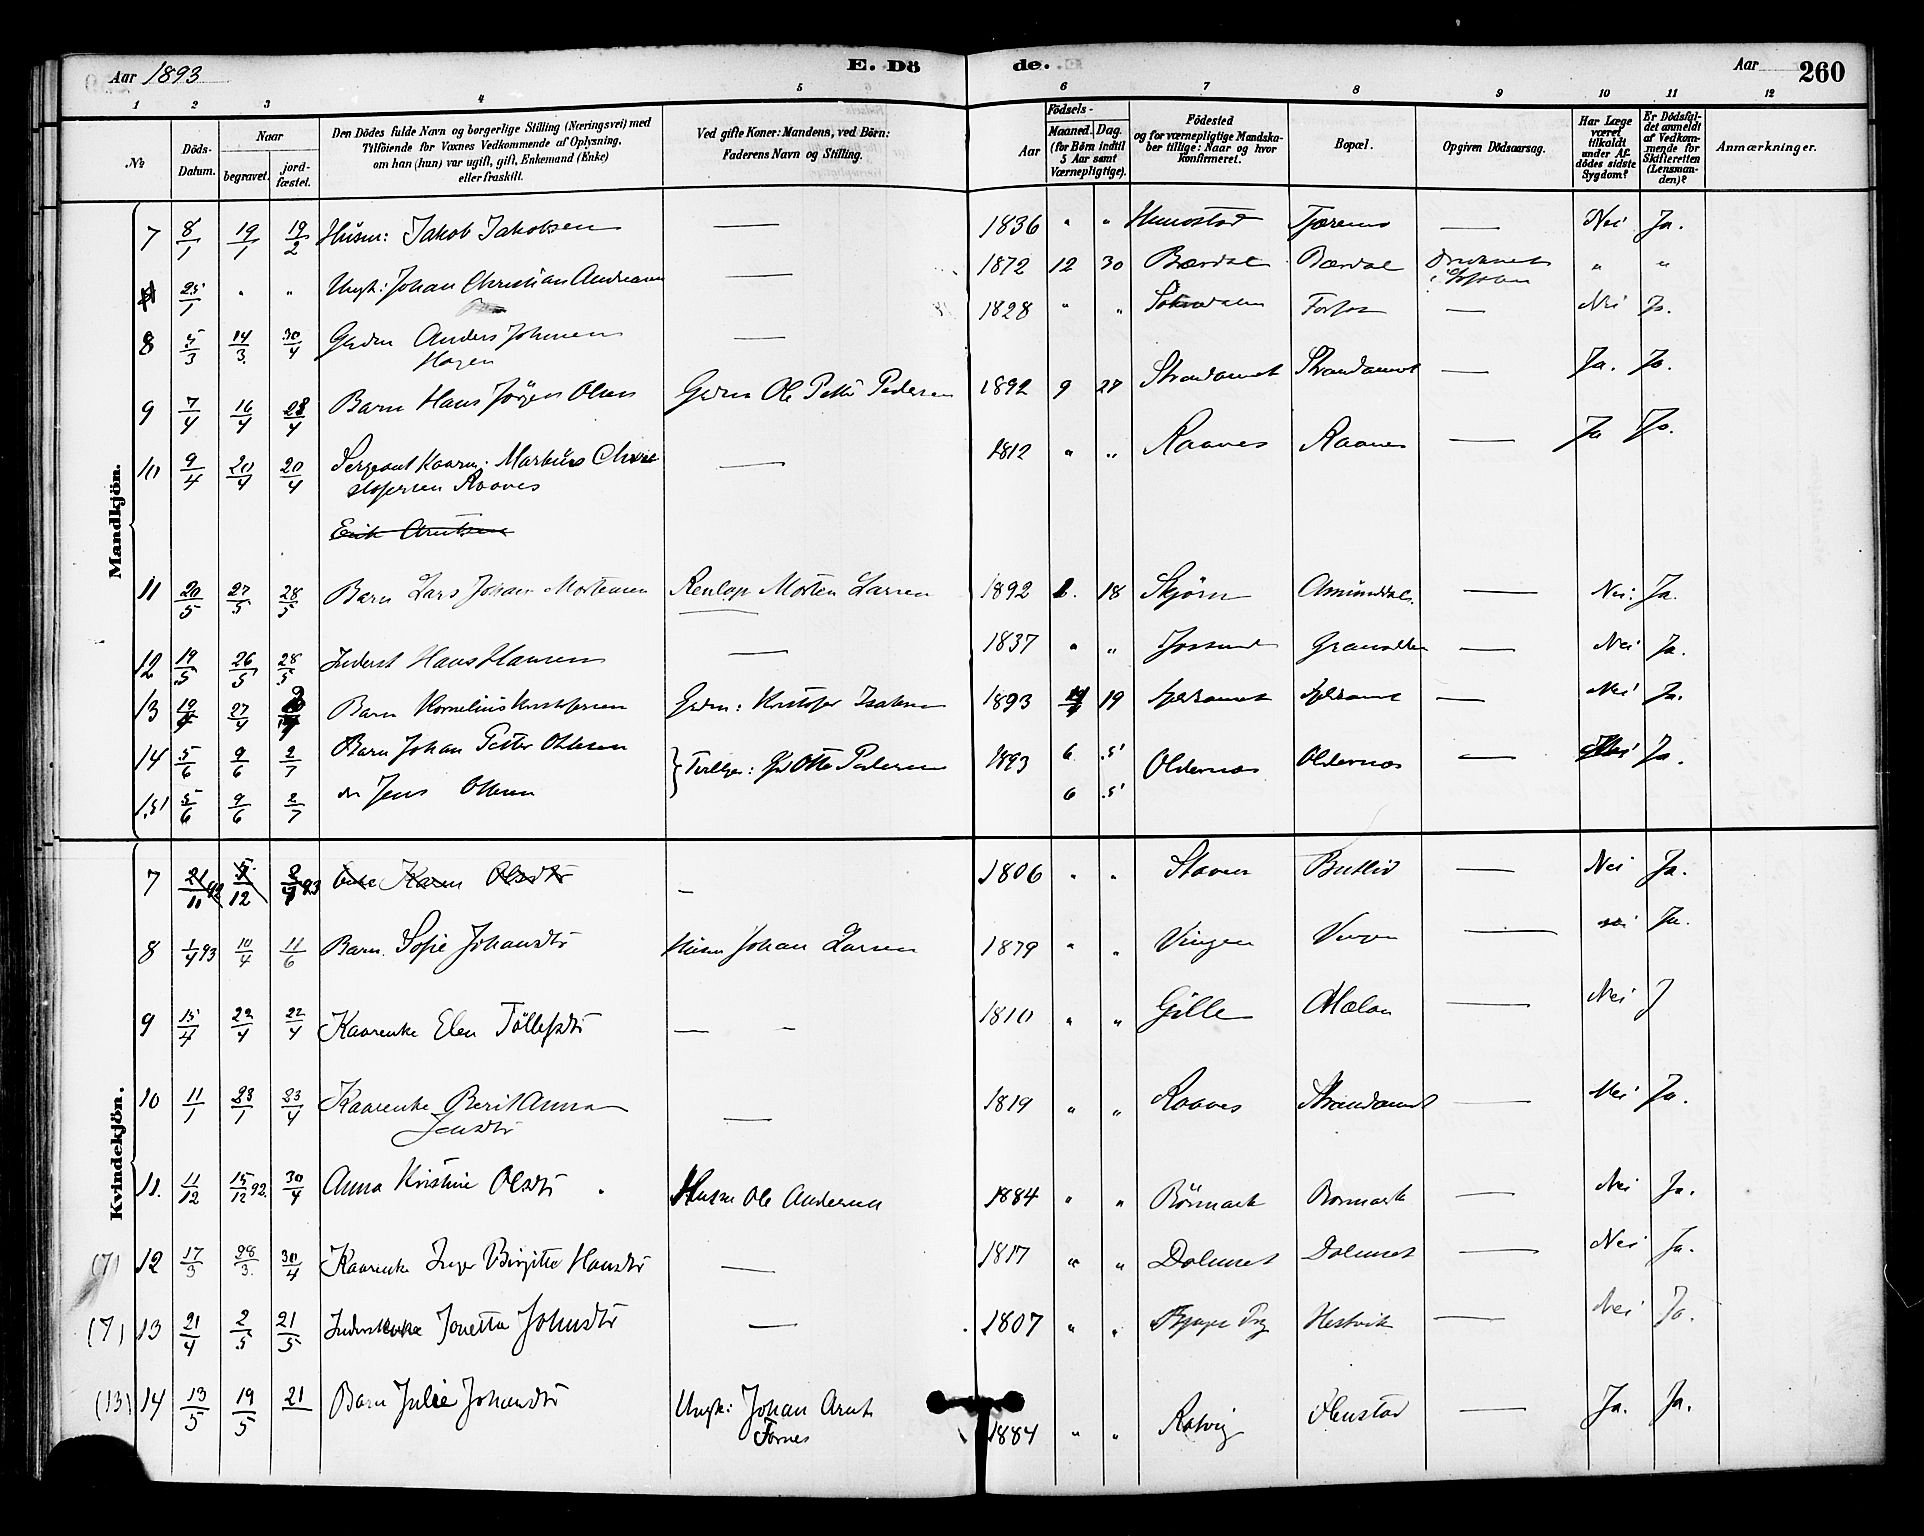 Aar 1893 E. Dö de. Aar 260
1 2 3 4 5 6 7 8 9 10 11 12
№ Döds-Datum. Naar begravet. jord-fæstet. Den Dödes fulde Navn og borgerlige Stilling (Næringsvei) med Tilföiende for Voxnes Vedkommende af Oplysning, om han (hun) var ugift, gift, Enkemand (Enke) eller fraskilt. Ved gifte Koner: Mandens, ved Börn: Faderens Navn og Stilling. Födsels- Aar Maaned. Dag. (for Börn indtil 5 Aar samt Værnepligtige). Födested og for værnepligtige Mandskaber tillige: Naar og hvor konfirmeret. Bopæl. Opgiven Dödsaarsag. Har Læge været tilkaldt under Afdödes sidste Sygdom? Er Dödsfaldet anmeldt af Vedkommende for Skifteretten (Lensmanden)? Anmærkninger.
Mandkjön.
7 8/1 19/1 19/2 Husm: Jakob Jakobsen — 1836 " " — Nei Ja.
25/1 " " Ungk: Johan Christian Andreasen — 1872 12 30 Bærdal Bærdal " "
8 5/3 14/3. 30/4 Gdm Anders Johnsen — 1828 " " — Nei Ja.
Hagen
9 7/4 16/4 28/4 Barn Hans Jörgen Olsen Gdm Ole Petter Pedersen 1892 9 27 Strandamot Strandamot — Ja. Ja.
10 9/4 20/4 20/4 Sergeant Kaarm: Markus Chri — 1812 " " Raanes Raanes — Ja Ja.
stofersen Raanes
Erik Arntsen
11 20/5 27/5 28/5 Barn Lars Johan Mortensen Morten Larsen 1892 18 Skjörn — Nei: Ja.
12 19/5 26/5 28/5 Inderst Hans Hansen — 1837 " " Jössund — Nei Ja.
13 27/4 Barn Kornelius Kristofersen Gdm: Kristofer Isaksen 1893 19 — Nei Ja.
14 5/6 9/6 2/7 Barn Johan Petter Ottesen } Tvillinger: Otto Pedersen 1893 6 5 Oldernes Oldernes — Nei Ja.
15 5/6 9/6 2/7 do Jens Ottesen 6 5
Kvindekjön.
7 21/11 92 /12 93 Enke Karen Olsdtr — 1806 " " Staven — Nei Ja.
8 1/4 93 10/4 11/6 Barn Sofie Johansdtr Husm Johan Larsen 1879 " " Vingen — Nei Ja.
9 15/4 22/4 22/4 Kaarenke Elen Tollefsdtr — - 1810 " " Gille Mælan — Nei J
10 11/1 23/1 23/4 Kaarenke Berit Anna — 1819 " " Raanes Strandamot — Nei Ja.
Jensdtr
11. 11/12 15/12 92. 30/4 Anna Kristine Olsdtr Husm Ole Andersen 1884 " " Börmark Bormark — Nei Ja.
(7) 12 17/3 28/3. 30/4 Kaarenke Inger Birgitte Hansdtr — 1817 " " — Nei Ja.
(7) 13 21/4 2/5 21/5 Inderstenke Jonetta Johnsdtr — 1807 " " Hestvik — Nei Ja.
(13) 14 13/5 19/5 21 Barn Julie Johansdtr Ungk: Johan Arnt 1884 " " Ratvig — Ja. Ja.
Fornes